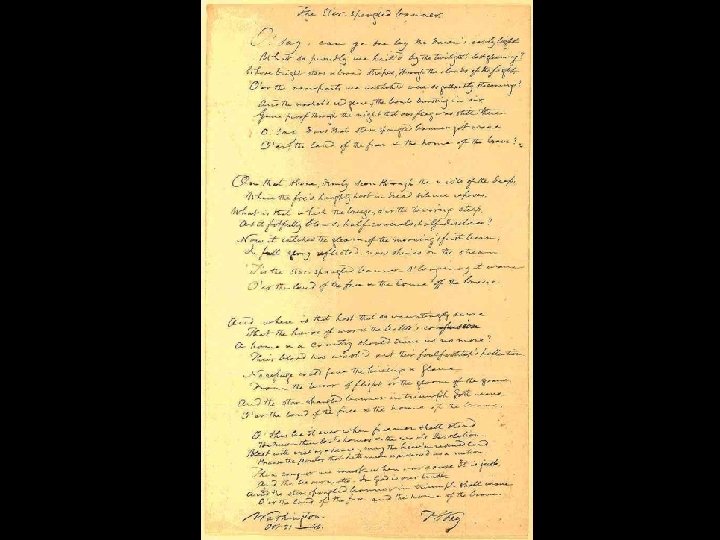 The Star-spangled banner
O! say, can ye see by the dawn's early light
What so proudly we hail'd by the twilight's last gleaming?
Whose bright stars & broad stripes, through the clouds of the fight
O'er the ramparts we watch'd were so gallantly streaming?
And the rocket's red glare, the bomb bursting in air
Gave proof through the night that our flag was still there
O! say does that star spangled banner yet wave
O'er the land of the free & the home of the brave?
On that shore, dimly seen through the mists of the deep,
Where the foe's haughty host in dread silence reposes,
What is that which the breeze, o'er the towering steep,
As it fitfully blows, half conceals, half discloses?
Now it catches the gleam of the morning's first beam,
In full glory reflected, now shines on the stream
'Tis the star-spangled banner O! long may it wave
O'er the land of the free & the home of the brave.
And where is that host that so vauntingly swore
That the havoc of war & the battle's confusion
A home & a Country should leave us no more?
Their blood has wash'd out their foul footstep's pollution
No refuge could save the hireling & slave
From the terror of flight or the gloom of the grave
And the star spangled banner in triumph doth wave
O'er the land of the free & the home of the brave.
O! thus be it ever when freemen shall stand
Between their lov'd homes & the war's desolation
Blest with vict'ry & peace, may the heav'n rescued land
Praise the power that hath made & preserved us a nation
Then conquer we must, when our cause it is just,
And this be our motto - In God is our trust
And the star spangled banner in triumph shall wave
O'er the land of the free and the home of the brave.
Washington
Oct 21
F S Key